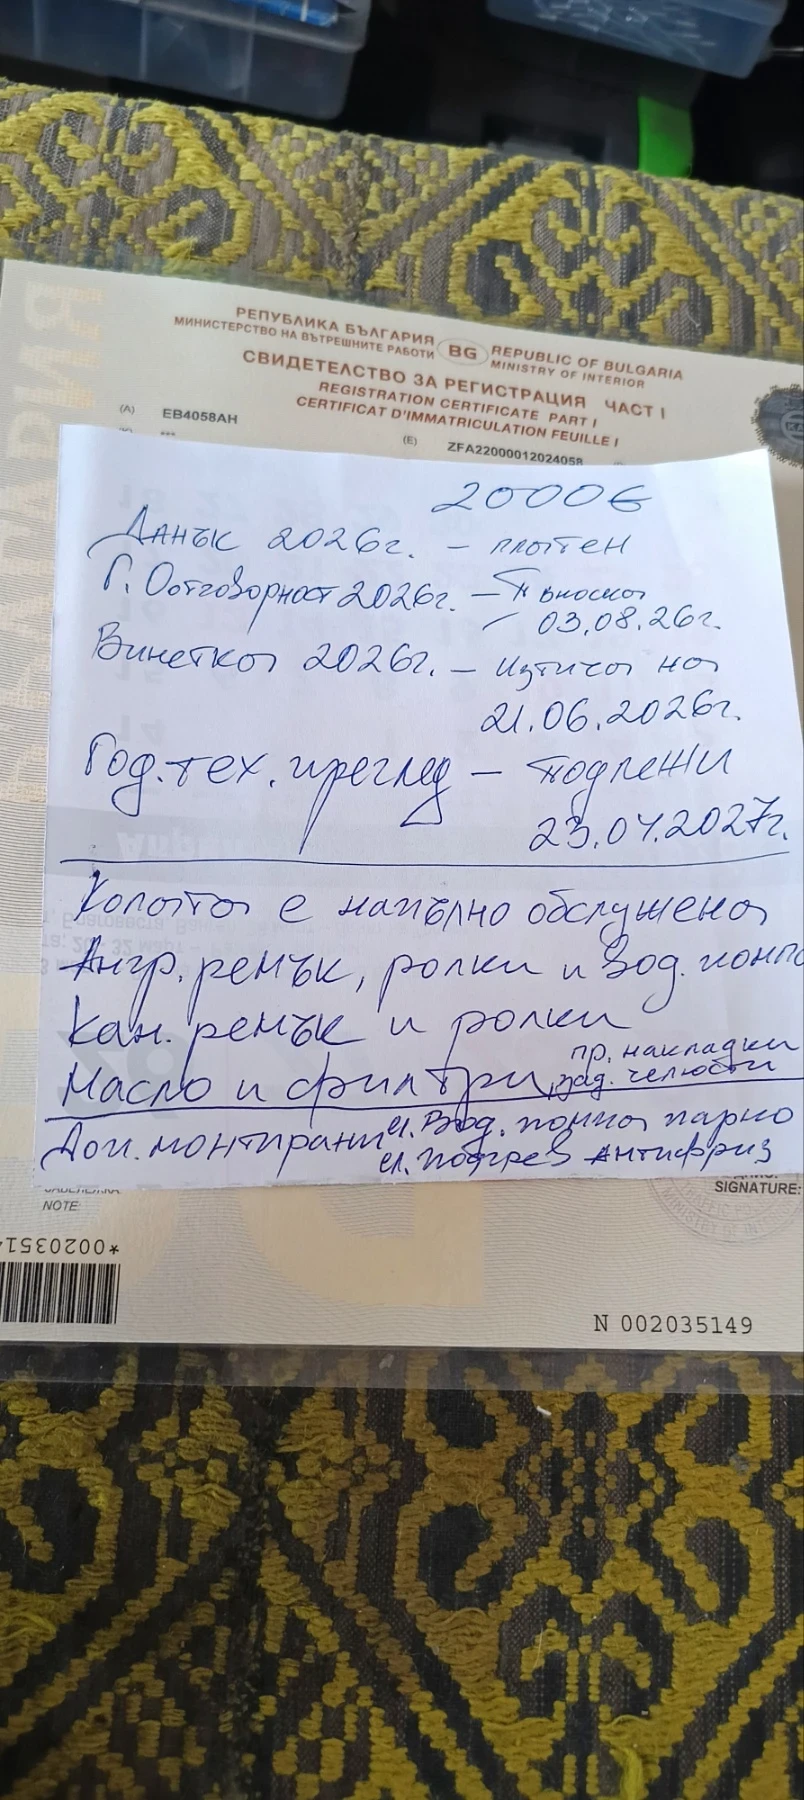 РЕПУБЛИКА БЪЛГАРИЯ BG REPUBLIC OF BULGARIA
МИНИСТЕРСТВО НА ВЪТРЕШНИТЕ РАБОТИ MINISTRY OF INTERIOR
СВИДЕТЕЛСТВО ЗА РЕГИСТРАЦИЯ ЧАСТ I
REGISTRATION CERTIFICATE PART I
CERTIFICAT D'IMMATRICULATION FEUILLE I
(A) EB4058AH
(E) ZFA22000012024058
2000€
Данък 2026г. – платен
Г. Оотговорност 2026г. – вноска
03.08.26г.
Винетка 2026г. – изтича на
21.06.2026г.
Год. тех. преглед – подлежи
23.04.2027г.
Колата е напълно обслужена
Ангр. ремък, ролки и вод. помпа
Кан. ремък и ролки
пр. накладки
Масло и филтри, зад. челюсти
Доп. монтирани ел. Вод. помпа парно
ел. подгрев Антифриз
NOTE:
SIGNATURE:
*00203514
N 002035149